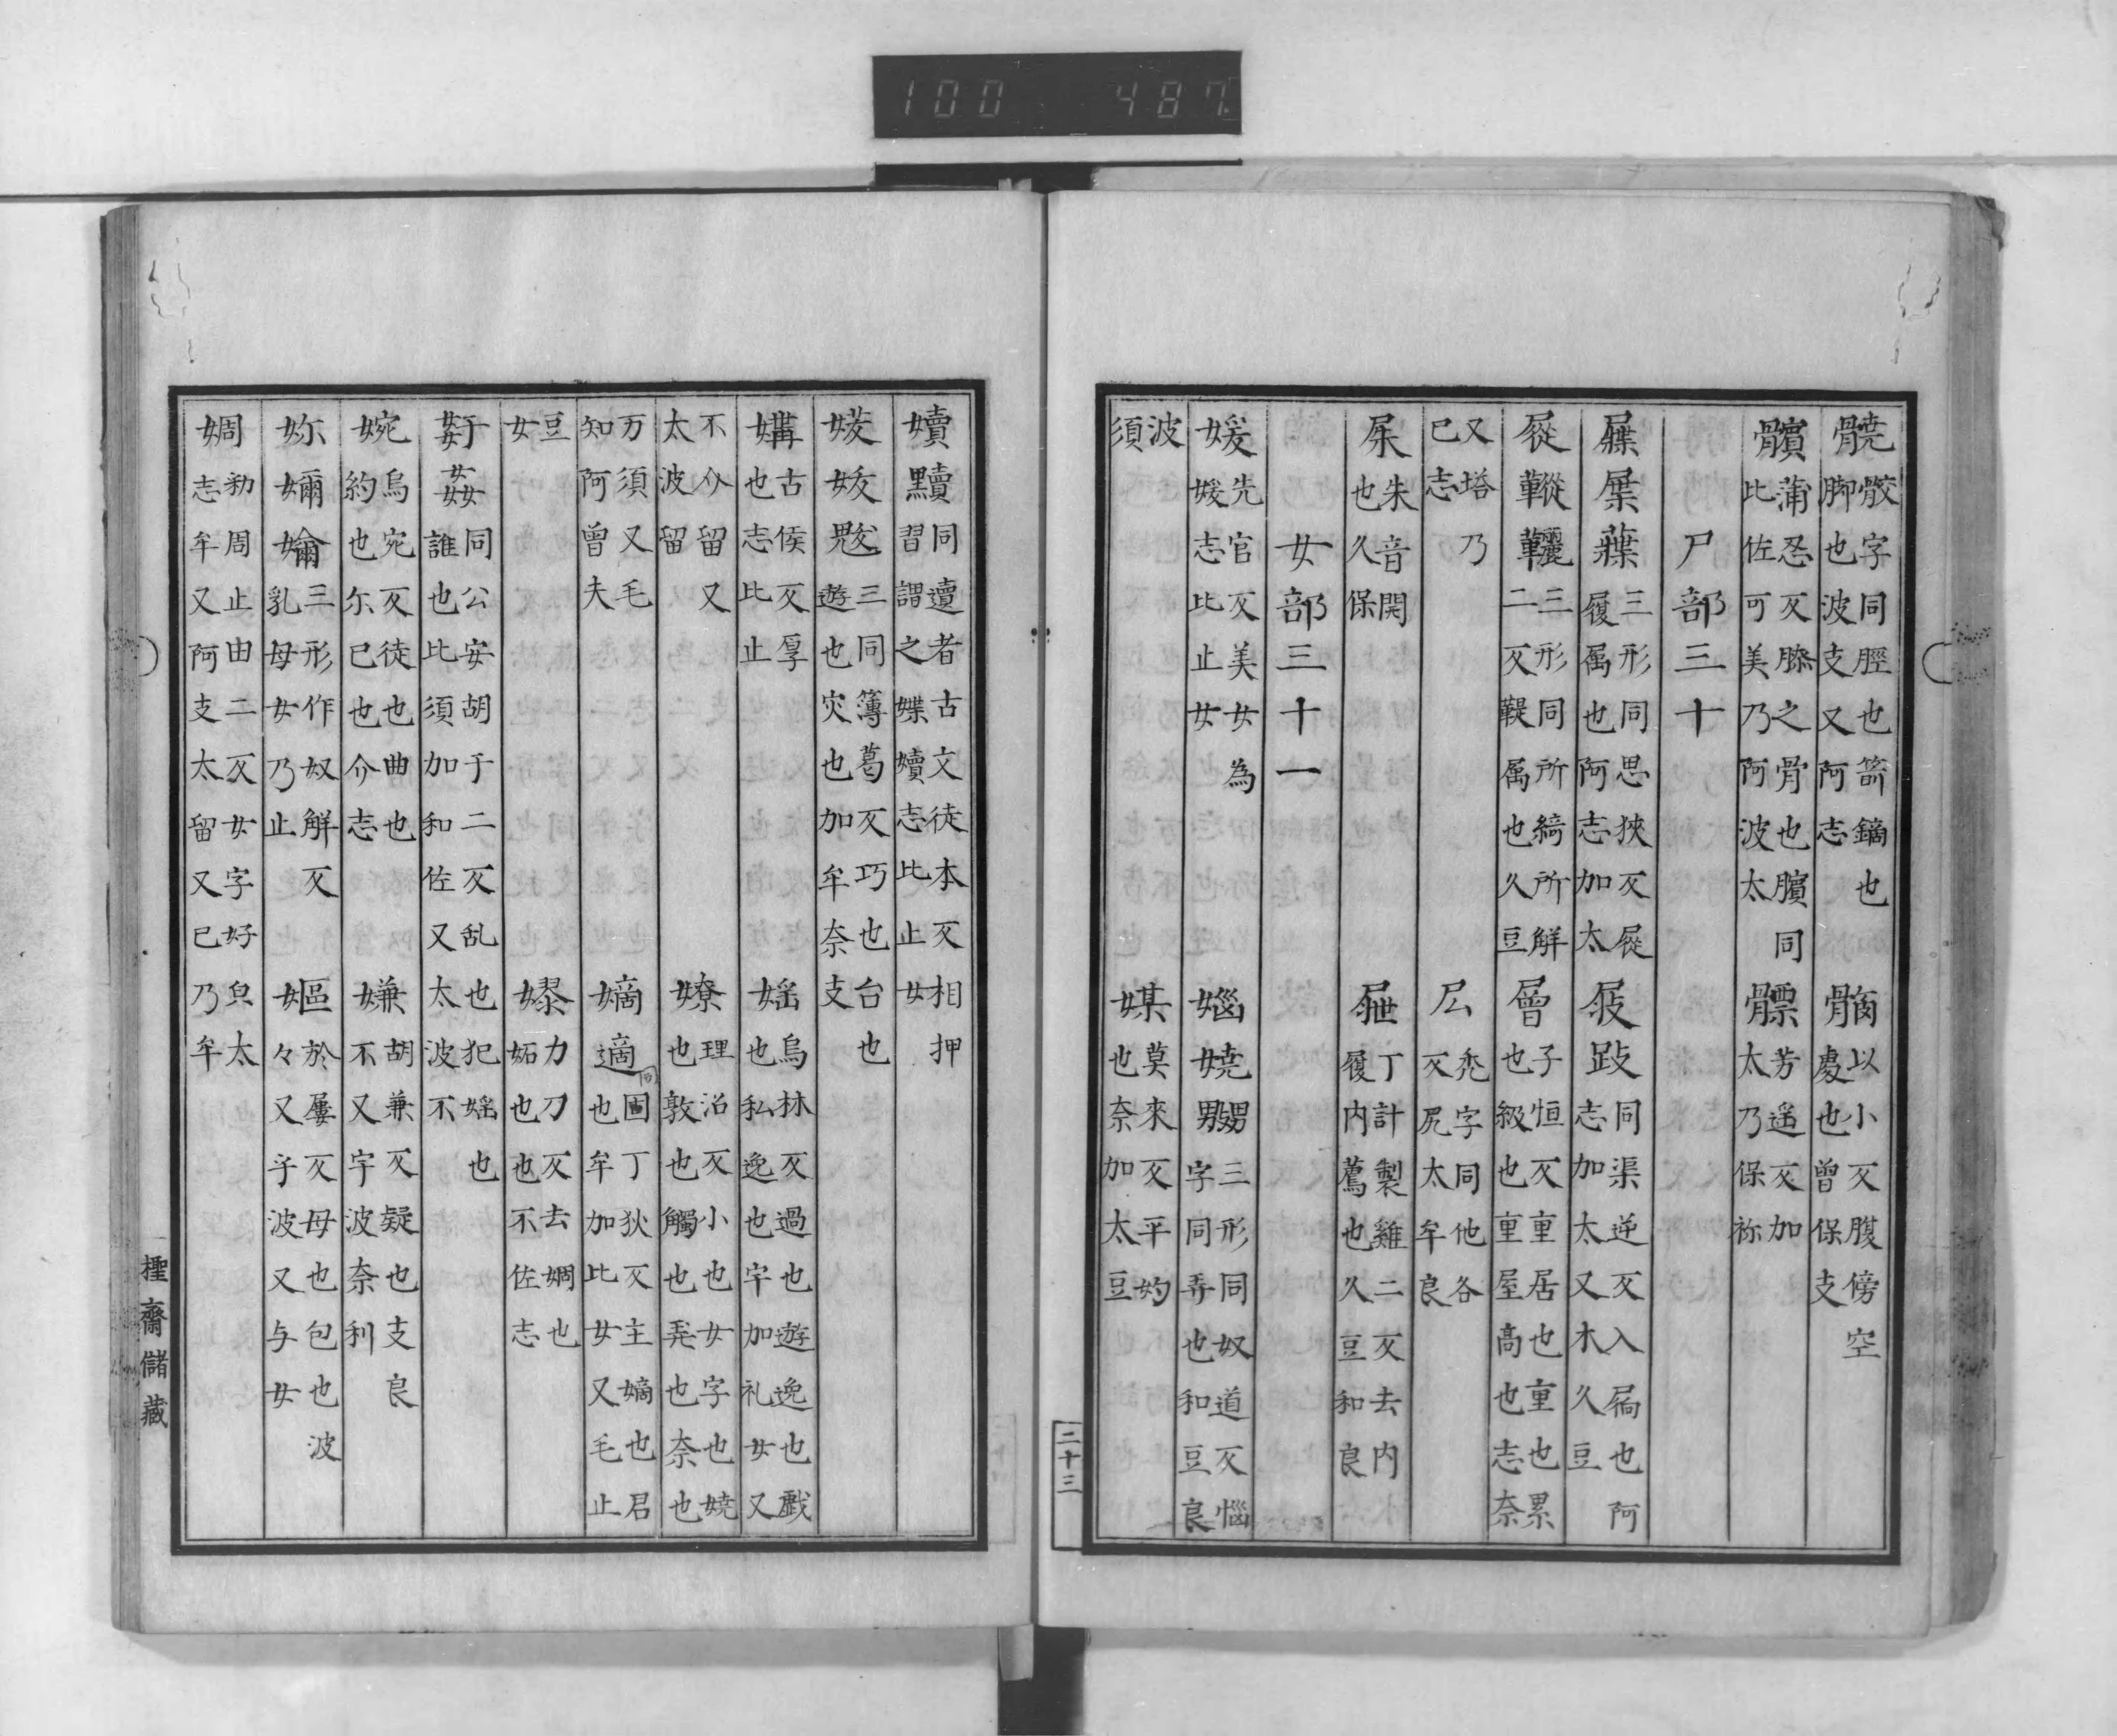 髐骹字同脛也箭鏑也脚也波支又阿志 以小反腹傍空處也曾保支
髕蒲忍反膝之骨也臏同比佐可美乃阿波太 芳遥反加太乃保祢
尸部三十
屧三形同思狹反屣履属也阿志加太 屐跂同渠逆反入屩也阿志加太又木久豆
屣三形同所綺所解二反鞮属也久豆 層子恒反重居也重也累也級也重屋高也志奈
又塔乃已志 禿字同他各反尻太牟良
屎朱音開也久保 屜丁計製雞二反去内履内薦也久豆和良
女部三十一
媛先官反美女為媛志比止女 嬈嬲三形同奴道反惱字同弄也和豆良
波須 媒莫來反平妁也奈加太豆
二十三
嬻黷同遺者古文徒本反相押習謂之媟嬻志比止女
三同簿葛反巧也台也遊也灾也加牟奈支
媾古侯反厚也志比止 媱烏林反過也遊逸也戯也私逸也宇加礼女又
不介留又太波留 嫽理沼反小也女字也嬈也敦也觸也弄也奈也
万須又毛知阿曾夫 嫡適丁狄反主嫡也君也牟加比女又毛止
豆女 嫪力刀反去嫺也妬也也不佐志
奸姦同公安胡于二反乱也犯婬也誰也比須加和佐又太波不
婉烏宛反徒也曲也約也尓已也介志 嫌胡兼反疑也支良不又宇波奈利
妳嬭三形作奴解反乳母女乃止 嫗於屢反母也包也波々又子波又与女
婤勑周止由二反女字好皃太志牟又阿支太留又已乃牟
齋儲藏
100 487